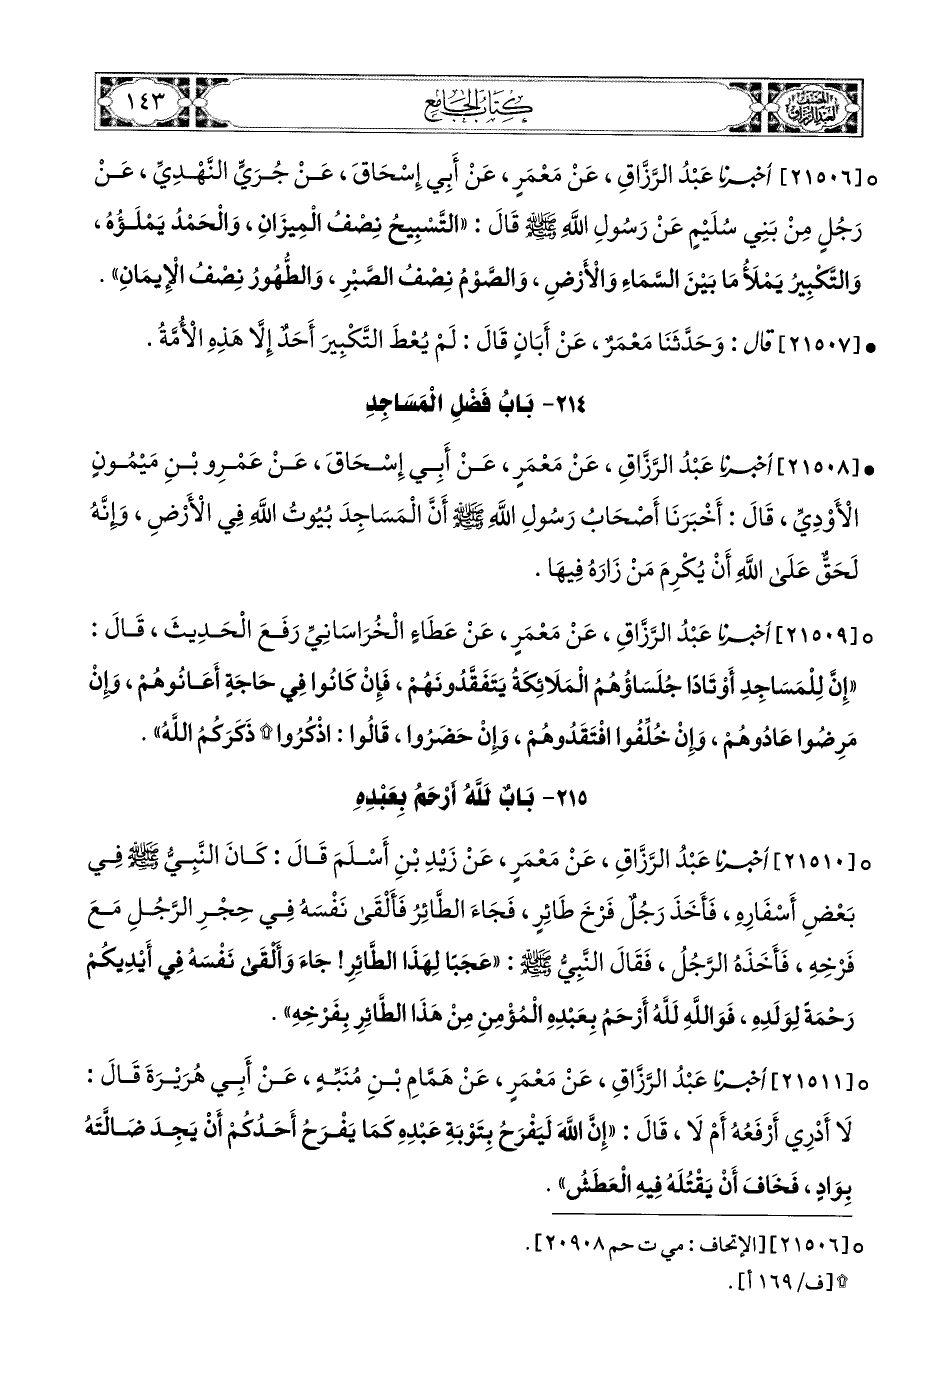 المصنف لعبد الرزاق
كتاب الجامع
١٤٣
○ [٢١٥٠٦] أخبرنا عَبْدُ الرَّزَّاقِ ، عَنْ مَعْمَرٍ ، عَنْ أَبِي إِسْحَاقَ ، عَنْ جُرَيِّ النَّهْدِيِّ ، عَنْ
رَجُلٍ مِنْ بَنِي سُلَيْمٍ عَنْ رَسُولِ اللَّهِ ﷺ قَالَ : «التَّسْبِيحُ نِصْفُ الْمِيزَانِ ، وَالْحَمْدُ يَمْلَؤُهُ ،
وَالتَّكْبِيرُ يَمْلَأُ مَا بَيْنَ السَّمَاءِ وَالْأَرْضِ ، وَالصَّوْمُ نِصْفُ الصَّبْرِ ، وَالطُّهُورُ نِصْفُ الْإِيمَانِ» .
● [٢١٥٠٧] قال : وَحَدَّثَنَا مَعْمَرٌ ، عَنْ أَبَانٍ قَالَ : لَمْ يُعْطَ التَّكْبِيرَ أَحَدٌ إِلَّا هَذِهِ الْأُمَّةُ .
٢١٤- بَابُ فَضْلِ الْمَسَاجِدِ
● [٢١٥٠٨] أخبرنا عَبْدُ الرَّزَّاقِ ، عَنْ مَعْمَرٍ ، عَنْ أَبِي إِسْحَاقَ ، عَنْ عَمْرِو بْنِ مَيْمُونٍ
الْأَوْدِيِّ ، قَالَ : أَخْبَرَنَا أَصْحَابُ رَسُولِ اللَّهِ ﷺ أَنَّ الْمَسَاجِدَ بُيُوتُ اللَّهِ فِي الْأَرْضِ ، وَإِنَّهُ
لَحَقٌّ عَلَى اللَّهِ أَنْ يُكْرِمَ مَنْ زَارَهُ فِيهَا .
○ [٢١٥٠٩] أخبرنا عَبْدُ الرَّزَّاقِ ، عَنْ مَعْمَرٍ ، عَنْ عَطَاءٍ الْخُرَاسَانِيِّ رَفَعَ الْحَدِيثَ ، قَالَ :
«إِنَّ لِلْمَسَاجِدِ أَوْتَادًا جُلَسَاؤُهُمُ الْمَلَائِكَةُ يَتَفَقَّدُونَهُمْ ، فَإِنْ كَانُوا فِي حَاجَةٍ أَعَانُوهُمْ ، وَإِنْ
مَرِضُوا عَادُوهُمْ ، وَإِنْ خُلِّفُوا افْتَقَدُوهُمْ ، وَإِنْ حَضَرُوا ، قَالُوا : اذْكُرُوا ۩ ذَكَرَكُمُ اللَّهُ» .
٢١٥- بَابٌ لَلَّهُ أَرْحَمُ بِعَبْدِهِ
○ [٢١٥١٠] أخبرنا عَبْدُ الرَّزَّاقِ ، عَنْ مَعْمَرٍ ، عَنْ زَيْدِ بْنِ أَسْلَمَ قَالَ : كَانَ النَّبِيُّ ﷺ فِي
بَعْضِ أَسْفَارِهِ ، فَأَخَذَ رَجُلٌ فَرْخَ طَائِرٍ ، فَجَاءَ الطَّائِرُ فَأَلْقَى نَفْسَهُ فِي حِجْرِ الرَّجُلِ مَعَ
فَرْخِهِ ، فَأَخَذَهُ الرَّجُلُ ، فَقَالَ النَّبِيُّ ﷺ : «عَجَبًا لِهَذَا الطَّائِرِ! جَاءَ وَأَلْقَى نَفْسَهُ فِي أَيْدِيكُمْ
رَحْمَةً لِوَلَدِهِ ، فَوَاللَّهِ لَلَّهُ أَرْحَمُ بِعَبْدِهِ الْمُؤْمِنِ مِنْ هَذَا الطَّائِرِ بِفَرْخِهِ» .
○ [٢١٥١١] أخبرنا عَبْدُ الرَّزَّاقِ ، عَنْ مَعْمَرٍ ، عَنْ هَمَّامِ بْنِ مُنَبِّهٍ ، عَنْ أَبِي هُرَيْرَةَ قَالَ :
لَا أَدْرِي أَرَفَعَهُ أَمْ لَا ، قَالَ : «إِنَّ اللَّهَ لَيَفْرَحُ بِتَوْبَةِ عَبْدِهِ كَمَا يَفْرَحُ أَحَدُكُمْ أَنْ يَجِدَ ضَالَّتَهُ
بِوَادٍ ، فَخَافَ أَنْ يَقْتُلَهُ فِيهِ الْعَطَشُ» .
○ [٢١٥٠٦] [الإتحاف : مي ت حم ٢٠٩٠٨] .
۩ [ف/ ١٦٩ أ] .